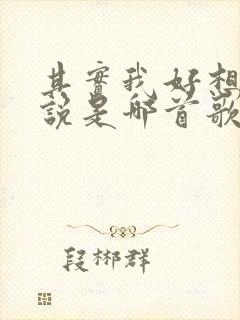 其實我好想
說是哪首歌
段郴群